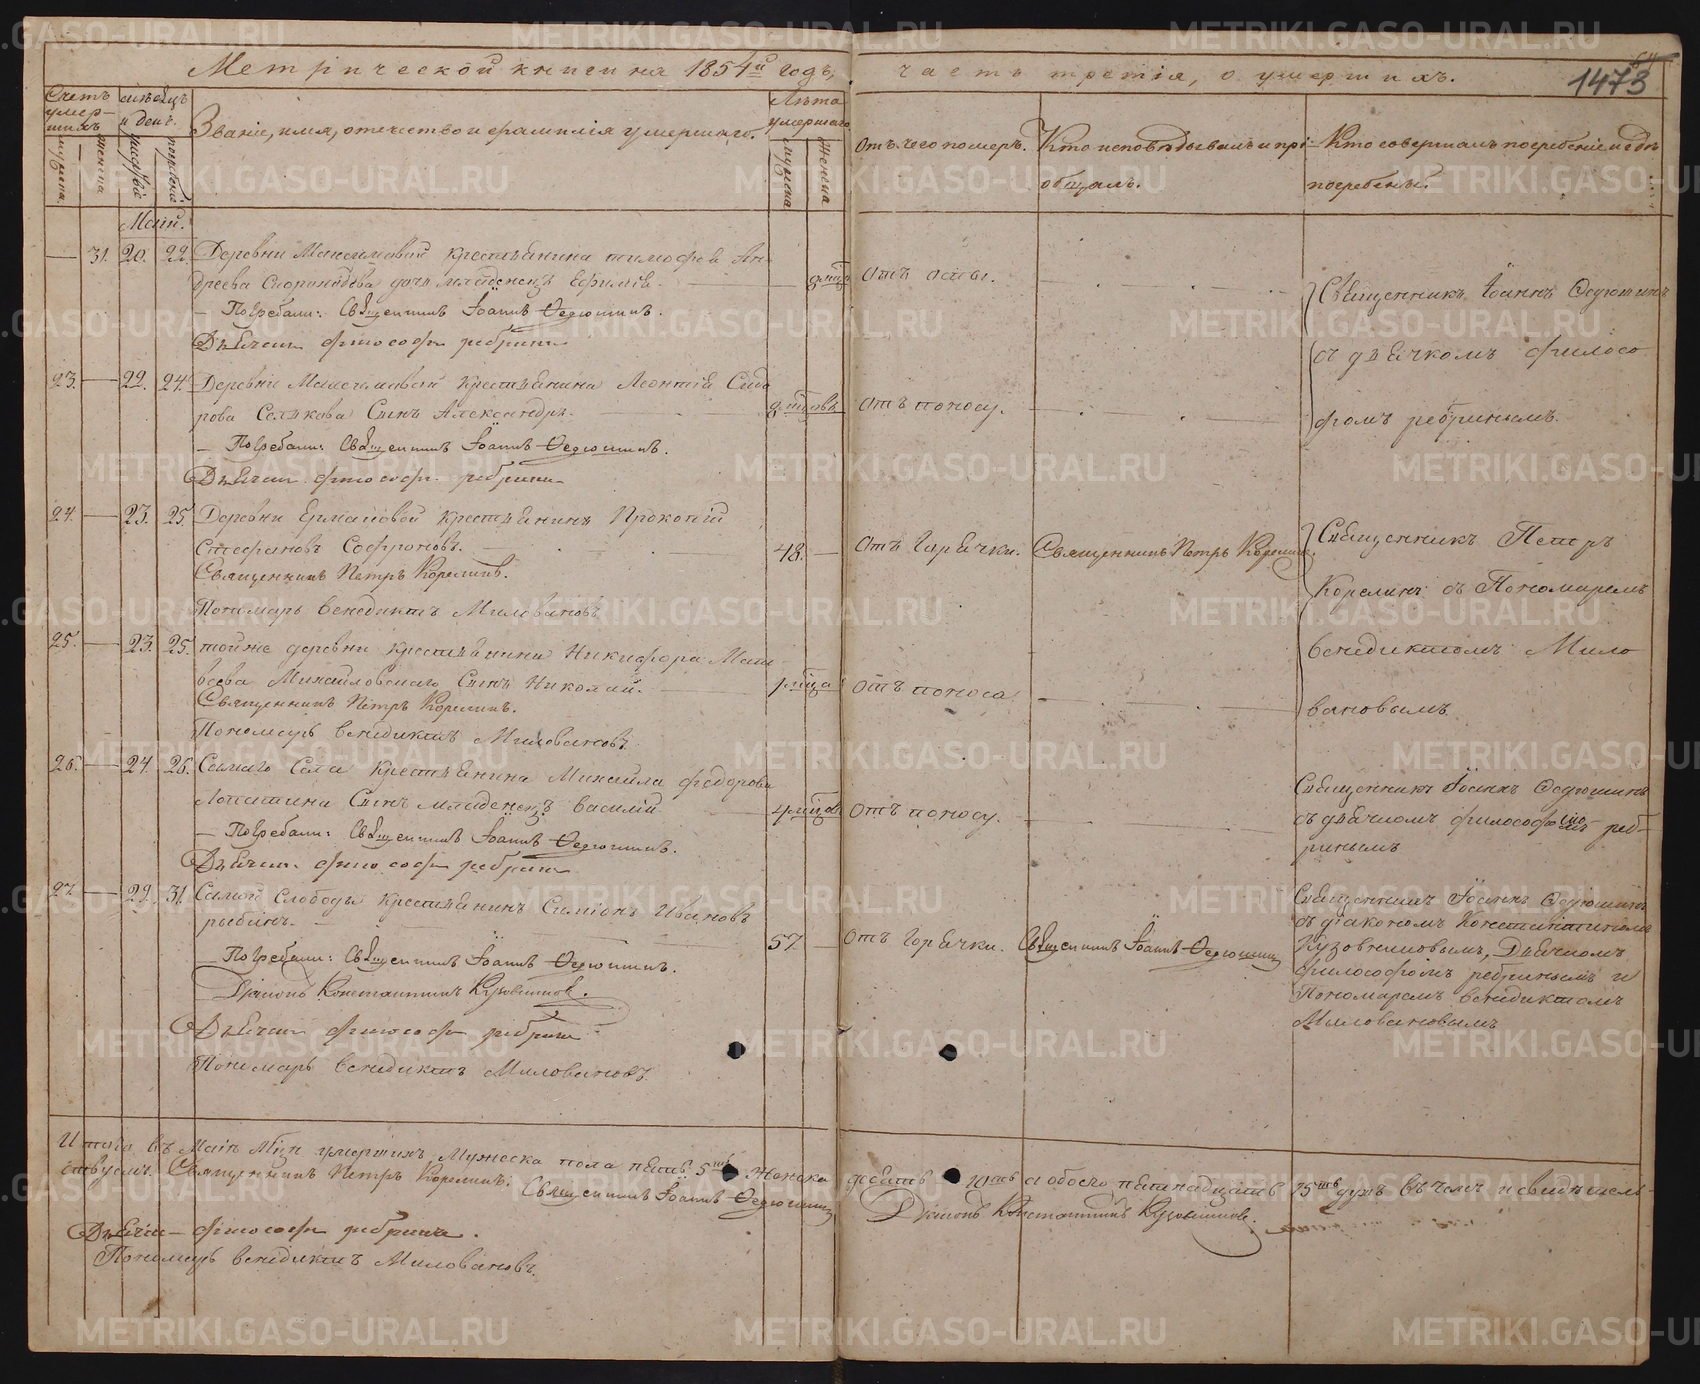 Метрической книги на 1854й годъ,
часть третія, о умершихъ.
1473
Счетъ умершихъ
мужеска
женска
мѣсяцъ и день
погребенія
Званіе, имя, отечество и фамилія умершаго.
Лѣта умершаго
мужеска
женска
Отъ чего померъ.
Кто исповѣдывалъ и прі-
общалъ.
Кто совершалъ погребеніе и гдѣ
погребены.
Маій.
— 31. 20. 22. Деревни Максимовой крестьянина Тимофея Ан-
дреева дочь младенецъ Ефимія.
Отъ оспы.
— Погребали: Священникъ Іоаннъ Ѳедюшинъ.
Дьячекъ Философъ Ребринъ
Священникъ Іоаннъ Ѳедюшинъ
съ дьячкомъ Филосо
фомъ Ребринымъ.
23. — 22. 24. Деревни крестьянина Леонтія Сидо
рова Сынъ Александръ.
Отъ поносу.
— Погребали: Священникъ Іоаннъ Ѳедюшинъ.
Дьячекъ Философъ Ребринъ
24. — 23. 25 Деревни Ермаковой крестьянинъ Прокопій
Стефановъ Софроновъ.
48. —
Отъ Горячки.
Священникъ Петръ Корелинъ
Священникъ Петръ Корелинъ.
Пономарь Венедиктъ Миловановъ
Священникъ Петръ
Корелинъ съ Пономаремъ
Венедиктомъ Мило
вановымъ
25. — 23. 25. тойже деревни крестьянина Никифора Мат
веева Михайловскаго Сынъ Николай.
Отъ поноса
Священникъ Петръ Корелинъ.
Пономарь Венедиктъ Миловановъ
26. — 24. 26. Самаго Села крестьянина Михаила Федорова
Лопатина Сынъ младенецъ Василій
Отъ поносу.
— Погребали: Священникъ Іоаннъ Ѳедюшинъ.
Дьячекъ Философъ Ребринъ
Священникъ Іоаннъ Ѳедюшинъ
съ дьячкомъ Философомъ Реб-
ринымъ
27. — 29. 31. Самой Слободы крестьянинъ Симіонъ Ивановъ
рыбинъ.
57. —
Отъ Горячки.
Священникъ Іоаннъ Ѳедюшинъ
— Погребали: Священникъ Іоаннъ Ѳедюшинъ.
Діаконъ Константинъ Кузовниковъ.
Дьячекъ Философъ Ребринъ
Пономарь Венедиктъ Миловановъ.
Священникъ Іоаннъ Ѳедюшинъ
съ діакономъ Константиномъ
Кузовниковымъ, Дьячкомъ
Философомъ Ребринымъ и
Пономаремъ Венедиктомъ
Миловановымъ
Итого въ Маіи Мѣцѣ умершихъ Мужеска пола пять 5ть Женска десять 10ть а обоего пятнадцать 15ть душъ въ чемъ и свидѣтель-
ствуемъ. Священникъ Петръ Корелинъ.
Священникъ Іоаннъ Ѳедюшинъ
Діаконъ Константинъ Кузовниковъ.
Дьячекъ Философъ Ребринъ.
Пономарь Венедиктъ Миловановъ.
METRIKI.GASO-URAL.RU